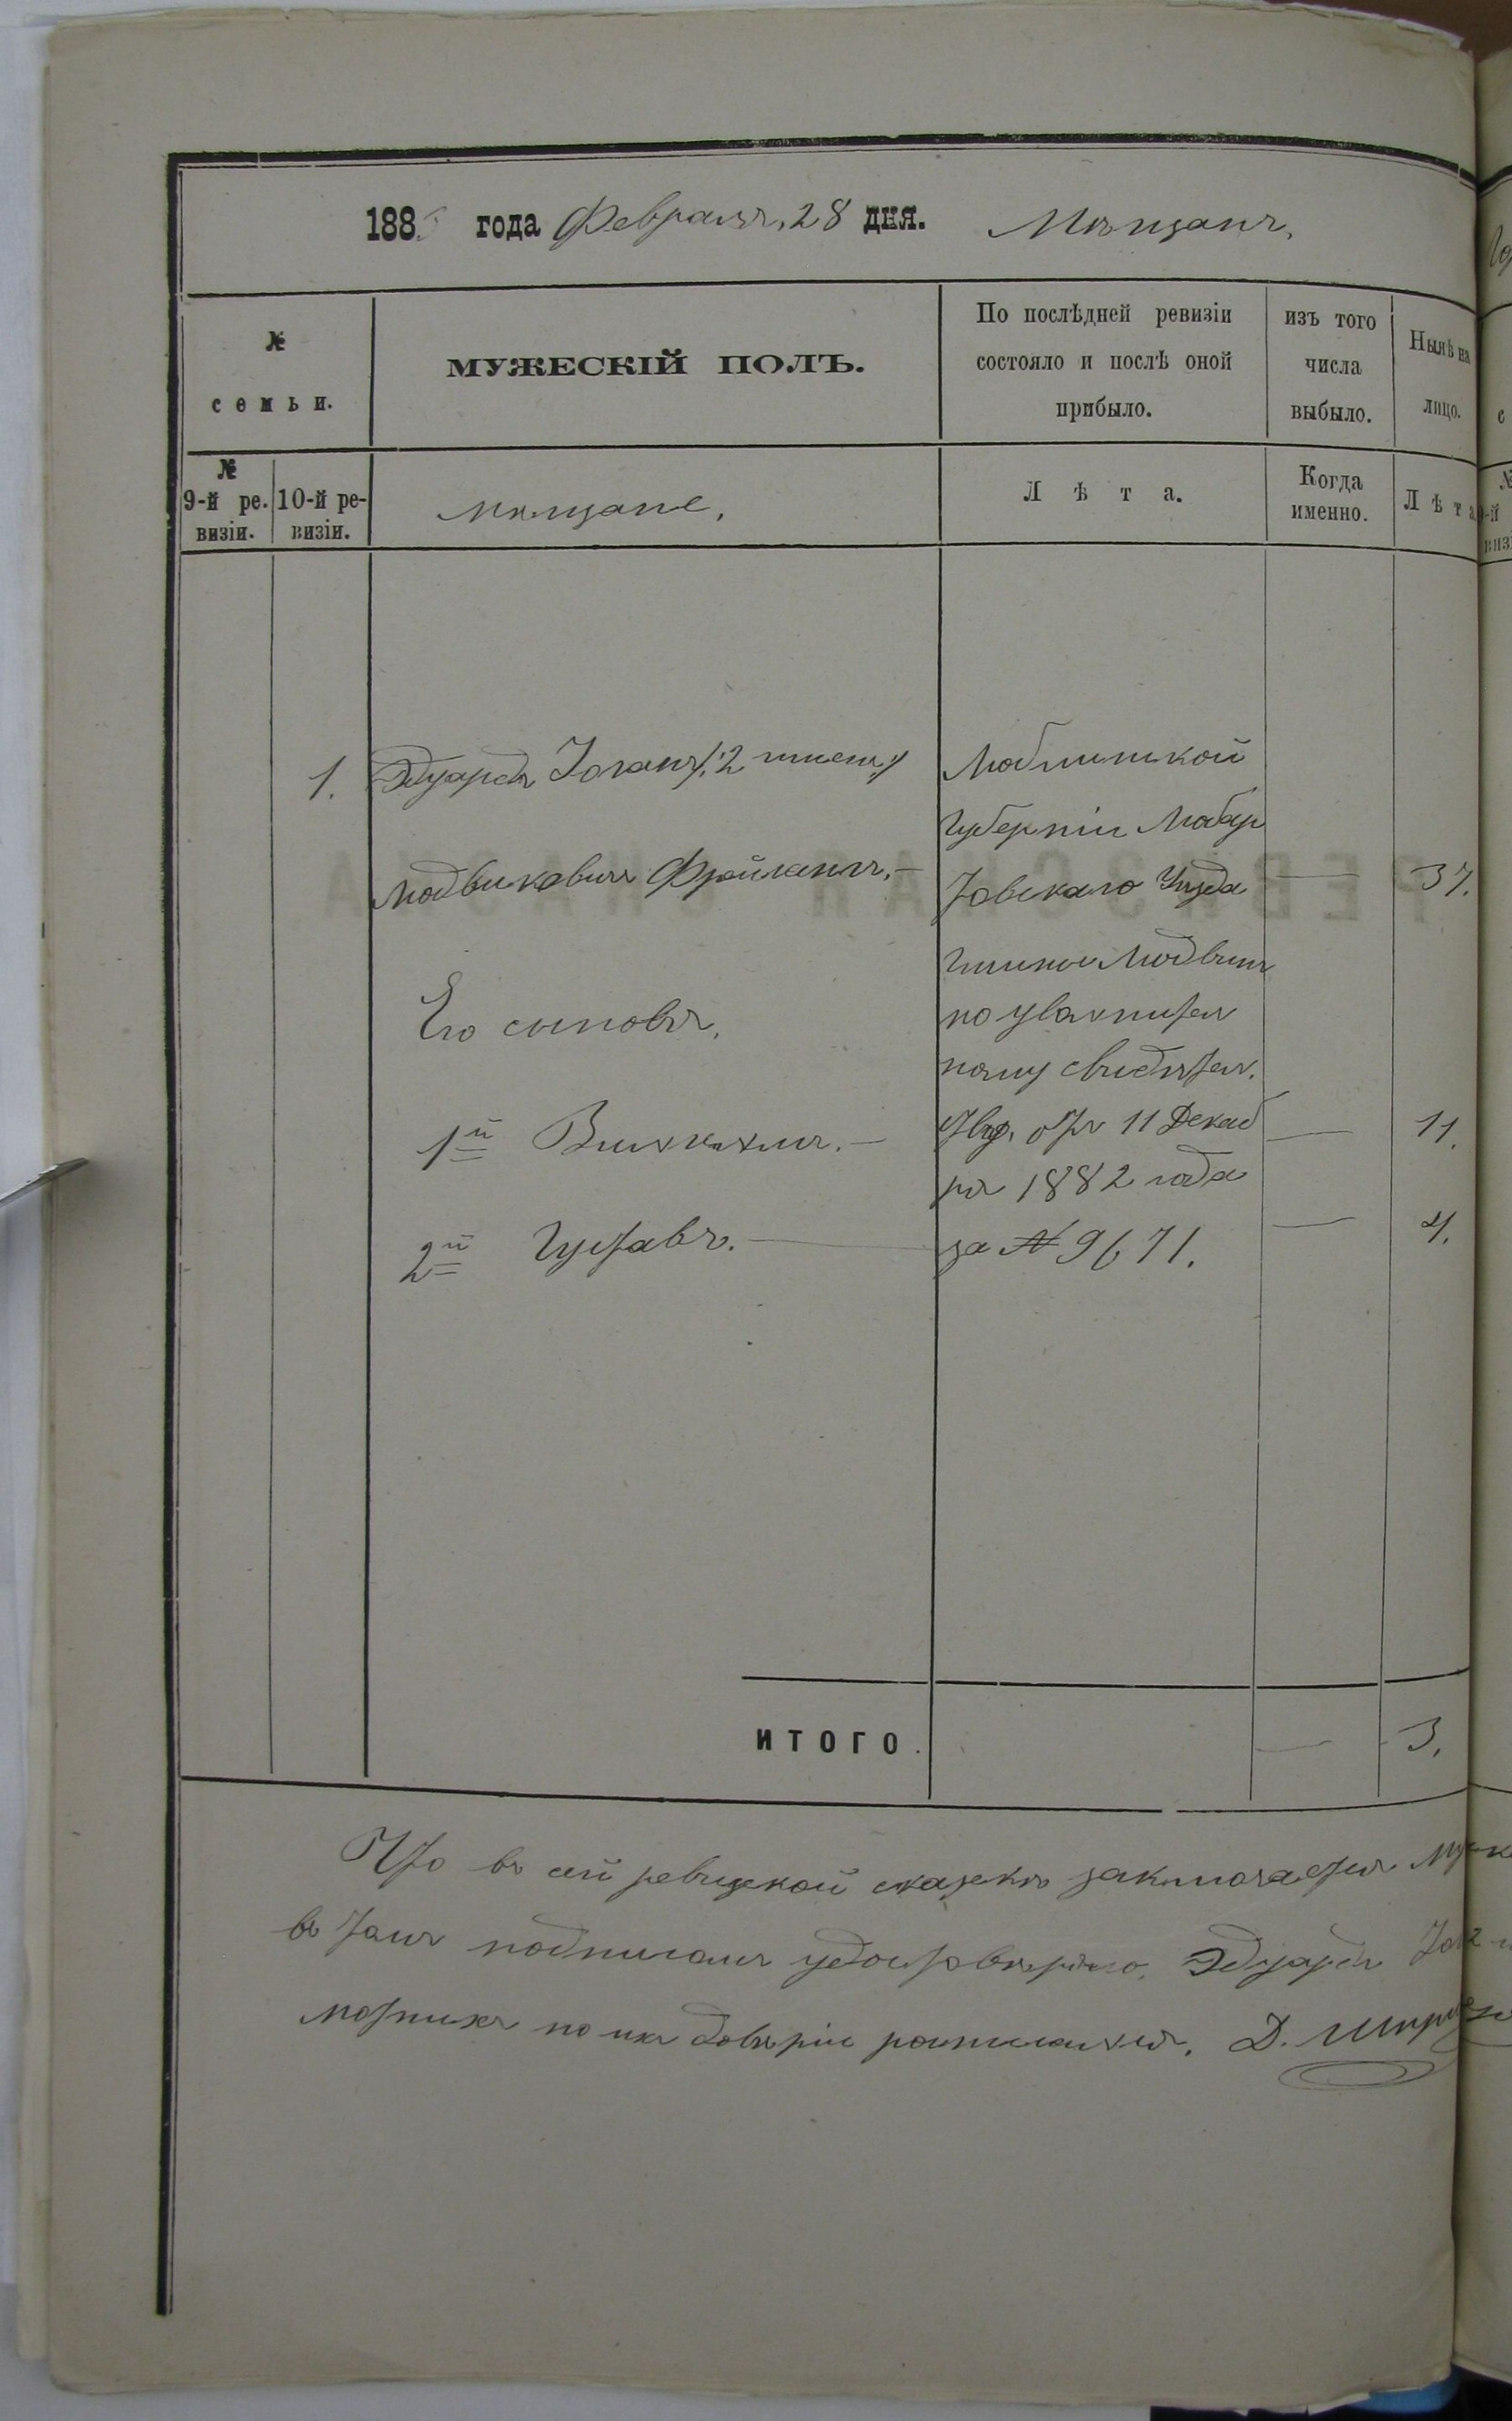 188 года Февраля 28 дня. Мѣщанъ,
№ семьи.
МУЖЕСКІЙ ПОЛЪ.
По послѣдней ревизіи
состояло и послѣ оной
прибыло.
изъ того
числа
выбыло.
Нынѣ на
лицо.
№
9-й ре-
визіи.
10-й ре-
визіи.
мѣщане,
Лѣта.
Когда
именно.
Лѣта
1. Эдуардъ Іоганъ /:2 имени:/
Людвиковичъ Фрейганъ. — 37.
Люблинской
Губерніи Любар
товскаго Уѣзда
гмины Людвинъ
по увольнитель
ному свидѣтел.
отъ 11 Декаб
ря 1882 года
за № 9671.
Его сыновья,
1й Вильгельмъ. — 11.
2й Густавъ. — 4.
ИТОГО. — 3.
Что въ сей ревизской сказкѣ заключается
въ томъ подписомъ удостовѣряю. Эдуардъ
по ихъ довѣрію росписался. Д.